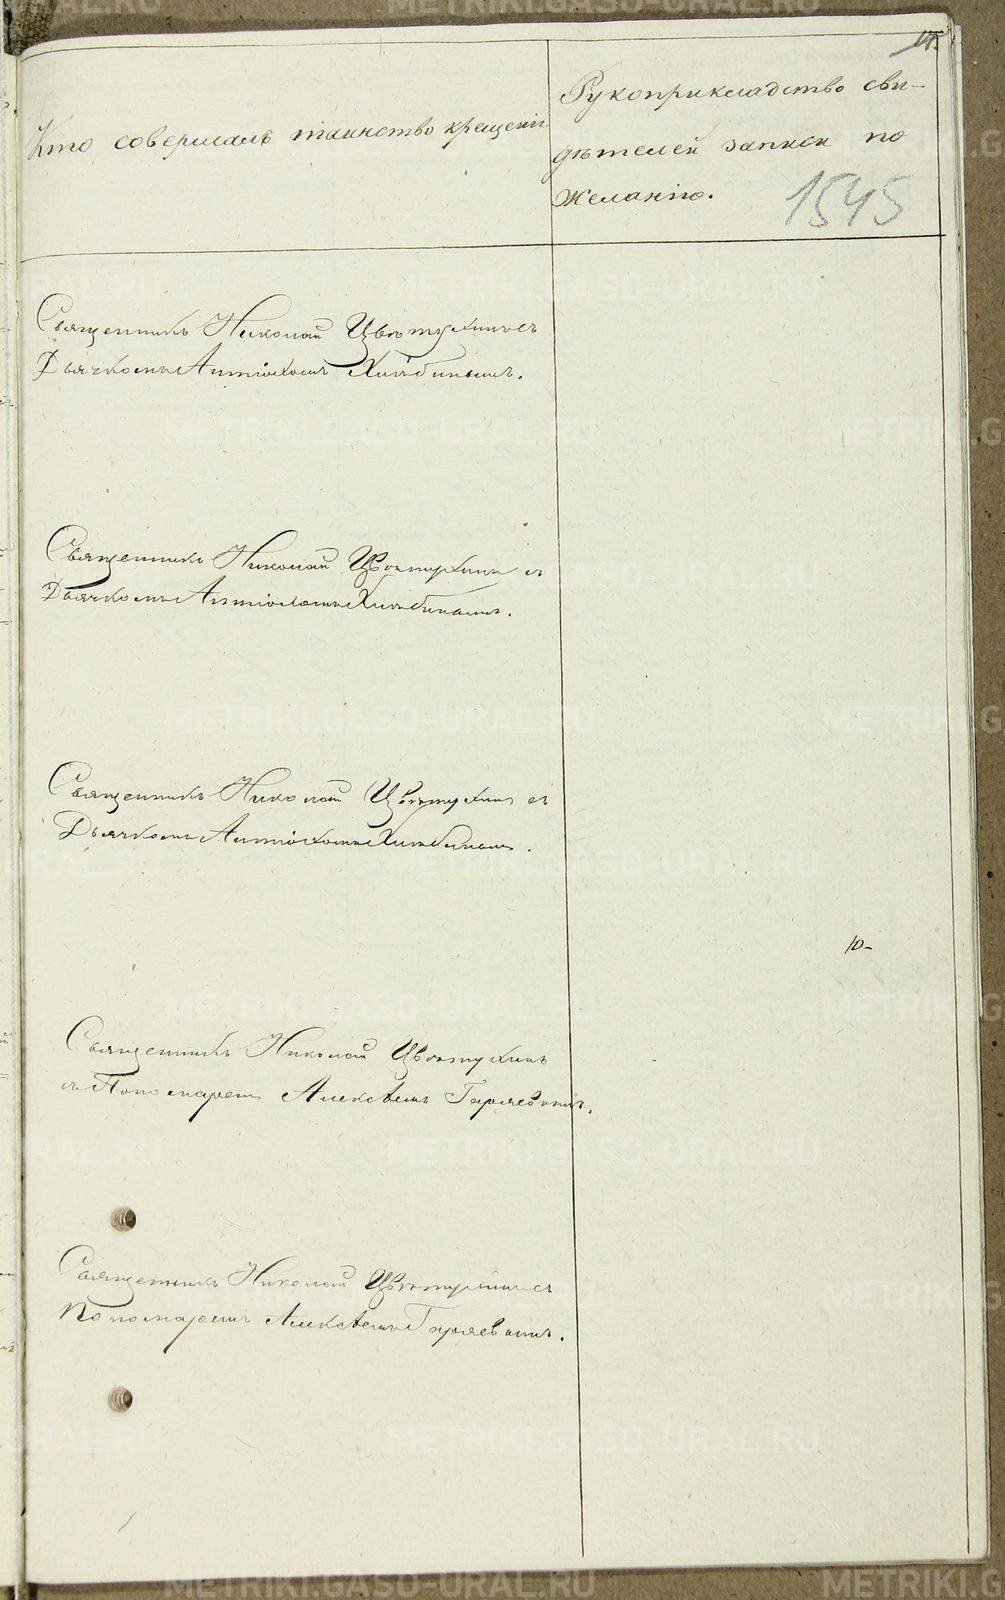 14.
Кто совершалъ таинство крещенія.
Рукоприкладство сви-
дѣтелей записи по
желанію.
1545
Священникъ Николай Цвѣтухинъ съ
Дьячкомъ Антіохомъ Хлѣбинымъ.
Священникъ Николай Цвѣтухинъ съ
Дьячкомъ Антіохомъ Хлѣбинымъ.
Священникъ Николай Цвѣтухинъ съ
Дьячкомъ Антіохомъ Хлѣбинымъ.
10-
Священникъ Николай Цвѣтухинъ
съ Пономаремъ Алексѣемъ Гаряевымъ.
Священникъ Николай Цвѣтухинъ съ
Пономаремъ Алексѣемъ Гаряевымъ.
METRIKI.GASO-URAL.RU